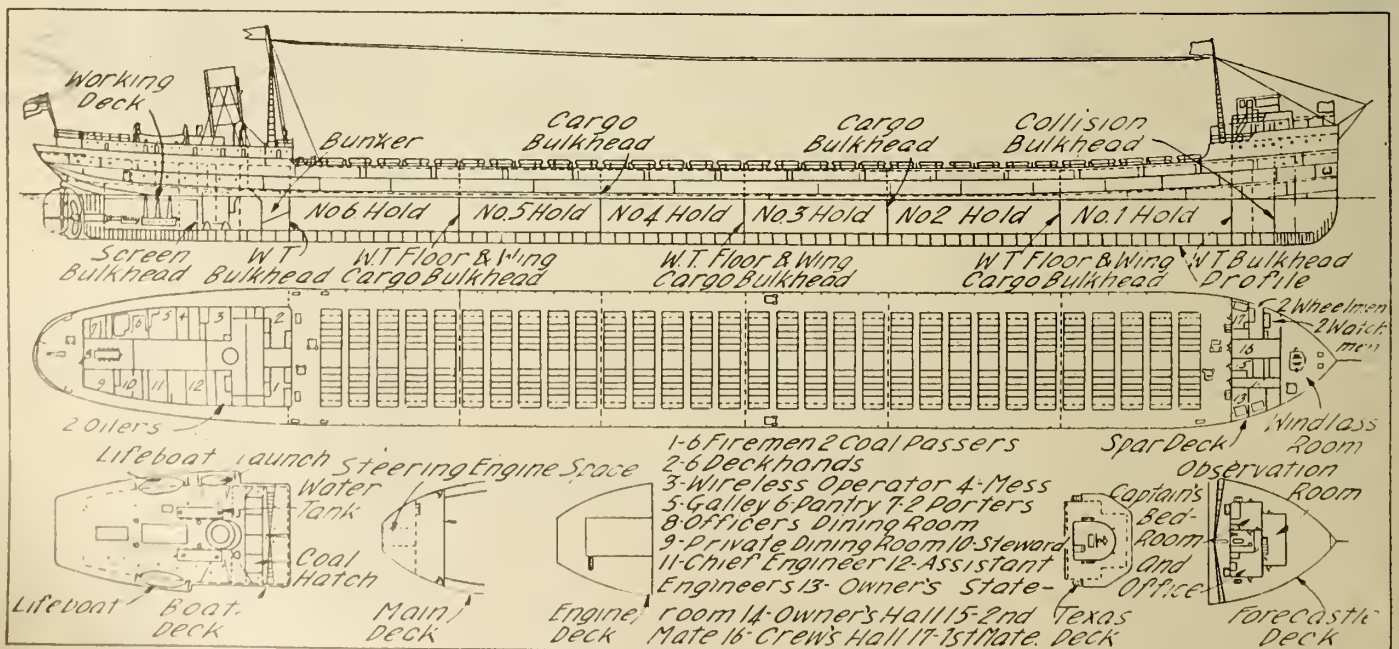 Working
Deck
Bunker
Cargo
Bulkhead
Cargo
Bulkhead
Collision
Bulkhead
No 6 Hold
No. 5 Hold
No 4 Hold
No. 3 Hold
No 2 Hold
No. 1 Hold
Screen
Bulkhead
W T
Bulkhead
W.T. Floor & Wing
Cargo Bulkhead
W.T. Floor & Wing
Cargo Bulkhead
W T Floor & Wing
Cargo Bulkhead
W T Bulkhead
Profile
7 6 5 4 3 2
8
9 10 11 12 1
17
16
15
13
2 Wheelmen
2 Watch
men
2 Oilers
Spar Deck
Windlass
Room
Lifeboat Launch
Water
Tank
Coal
Hatch
Lifeboat
Boat
Deck
Steering Engine Space
Main
Deck
Engine
Deck
1-6 Firemen 2 Coal Passers
2-6 Deckhands
3-Wireless Operator 4-Mess
5-Galley 6-Pantry 7-2 Porters
8-Officers Dining Room
9-Private Dining Room 10-Steward
11-Chief Engineer 12-Assistant
Engineers 13-Owner's State-
room 14-Owner's Hall 15-2nd
Mate 16-Crew's Hall 17-1st Mate.
Texas
Deck
Captain's
Bed-
Room
and
Office
Observation
Room
Forecastle
Deck